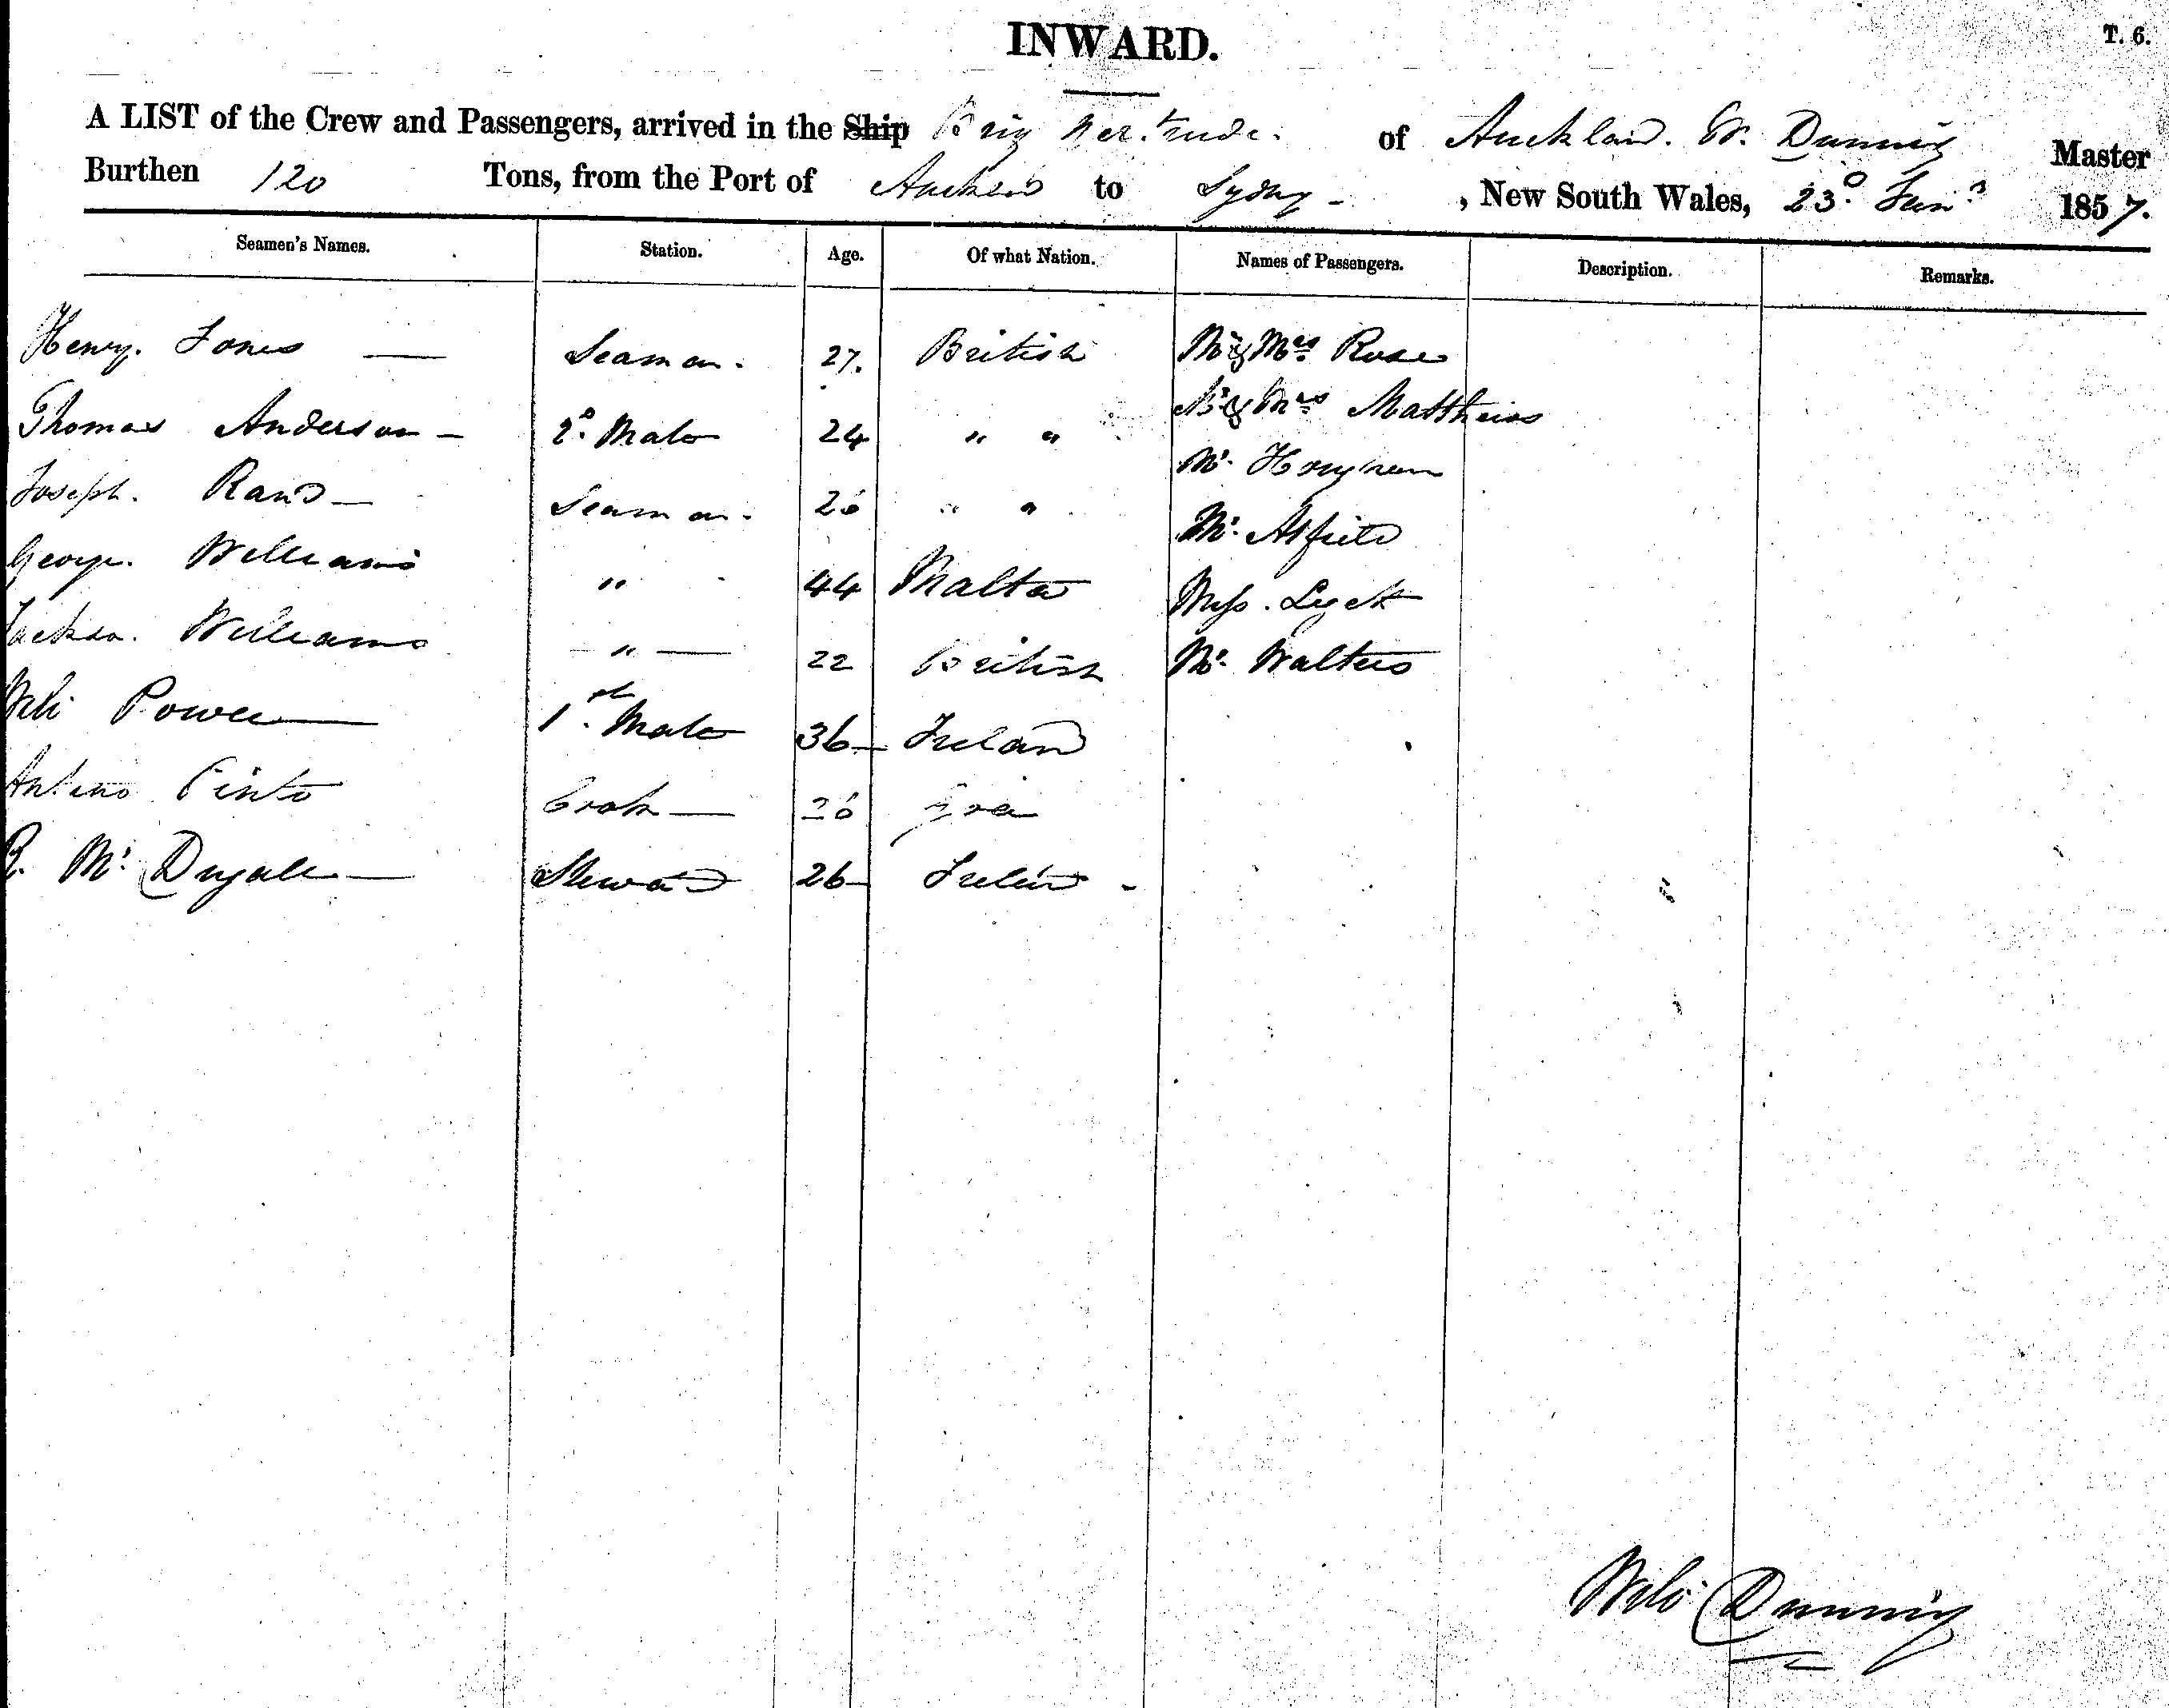 INWARD.
T. 6.
A LIST of the Crew and Passengers, arrived in the Ship Brig Gertrude. of Auckland. W. Dunning Master
Burthen 120 Tons, from the Port of Auckland to Sydny - , New South Wales, 23d. Jany. 1857.
Seamen's Names. Station. Age. Of what Nation. Names of Passengers. Description. Remarks.
Henry. Jones — Seaman. 27. British Mr & Mrs Rose
Thomas Anderson - 2d. Mate 24 " " Mr & Mrs Matthews
Joseph. Rand — Seaman. 26 " " Mr.
George. Williams " 44 Malta Mr.
Jackson. Williams — " — 22 British Miss.
Wm Power — 1st. Mate 36 — Ireland Mr. Walters
Antonio Pinto Cook — 26 Goa
R. Mc Dugall — Steward 26 — Ireland -
Wm Dunning